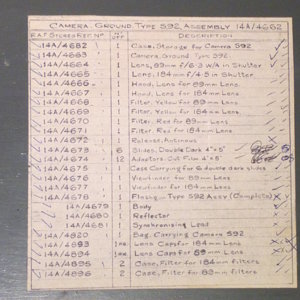 CAMERA, GROUND, TYPE S92, ASSEMBLY 14A/4662
R.A.F. STORES REF. Nº No OFF DESCRIPTION
14A/4682 1 Case, Storage for Camera S92
14A/4663 1 Camera, Ground Type S92
14A/4664 1 Lens, 89mm f/6.3 W/A in Shutter
14A/4665 1 Lens, 184mm f/4.5 in Shutter
14A/4666 1 Hood, Lens for 89mm Lens
14A/4667 1 Hood, Lens for 184mm Lens
14A/4668 1 Filter, Yellow for 89mm Lens
14A/4669 1 Filter, Yellow for 184mm Lens
14A/4670 1 Filter Red for 89mm Lens
14A/4671 1 Filter Red for 184mm Lens
14A/4672 1 Release, Antinous
14A/4673 6 Slides, Double Dark 4"x5"
14A/4674 12 Adaptors, Cut Film 4"x5"
14A/4675 1 Case Carrying for 6 double dark slides
14A/4676 1 Viewfinder for 89mm Lens
14A/4677 1 Viewfinder for 184mm Lens
14A/4678 1 Flashgun Type S92 Assy (Complete)
14A/4679 1 Body
14A/4680 1 Reflector
14A/4681 1 Synchronising Lead
14A/4920 1 Bag, Carrying Camera S92
14A/4893 Lens Caps for 184mm Lens
14A/4894 Lens Caps for 89mm Lens
14A/4895 2 Case, Filter for 184mm filters
14A/4896 2 Case, Filter for 89mm filters